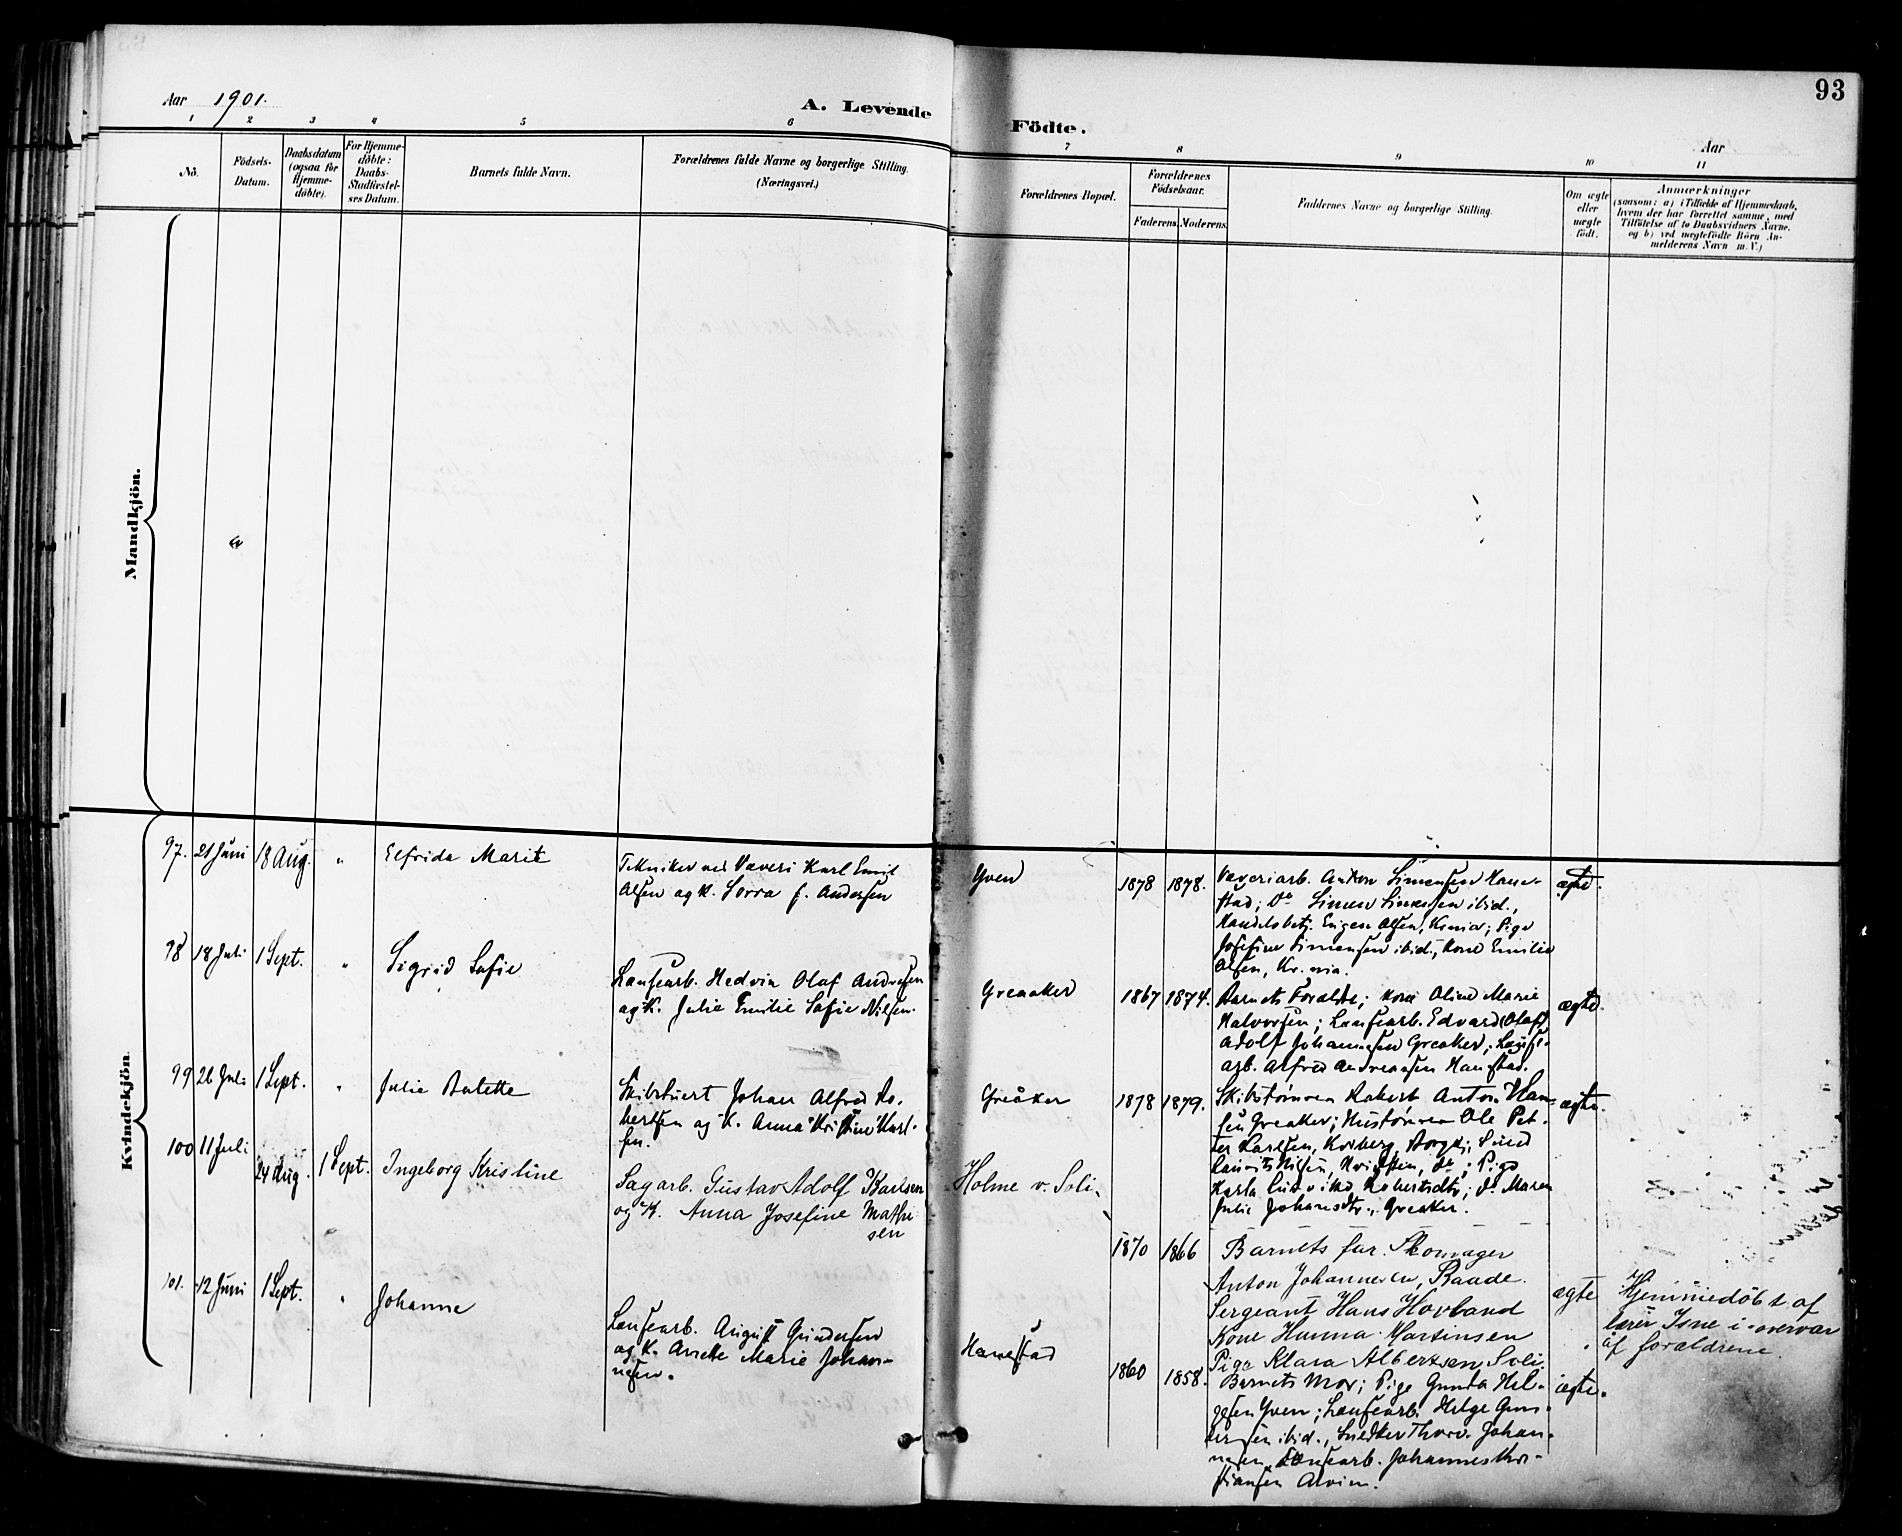 93
Aar 1901.
A. Levende Födte.
Aar
1 2 3 4 5 6 7 8 9 10 11
No.
Födsels-
Datum.
Daabsdatum
(ogsaa for
Hjemme-
døbte).
For Hjemme-
døbte:
Daabs-
Stadfæstel-
ses Datum.
Barnets fulde Navn.
Forældrenes fulde Navne og borgerlige Stilling.
(Næringsvei.)
Forældrenes Bopæl.
Forældrenes
Födselsaar.
Faderens. Moderens.
Faddernes Navne og borgerlige Stilling.
Om ægte
eller
uægte
født.
Anmærkninger
(saasom: a) i Tilfælde af Hjemmedaab,
hvem der har forrettet samme, med
Tilføielse af to Daabsvidners Navne.
og b) ved uægtefødte Børn An-
melderens Navn m. V.)
Mandkjön.
Kvindekjön.
97. 21 Juni 18 Aug. " Elfrida Marie
Tekniker ved Væveri Karl Emil
Olsen og K. f. Andersen
Yven
1878 1878.
Væveriarb. Anton Simensen Hane-
stad; Do Simen Simensen ibid.,
Handelsbetj. Olsen, Kr.nia; Pige
Josefine Simensen ibid., Kone Emilie
Olsen, Kr.nia.
ægte.
98 18 Juli 1 Sept. " Sigrid Sofie
Landsearb. Hedvin Olaf Andresen
og K. Julie Emilie Sofie Nilsen.
Greaaker
1867 1874.
Barnets Forældre; Kone Oline Marie
Halvorsen; Lansearb. Edvard (Olaf)
Adolf Johannesen Greaker, Lanse-
arb. Alfred Andreassen Hanestad.
ægte.
99 26 Juli 1 Sept. " Julie Bolette
Skibstuert Johan Alfred Ro-
bertsen og K. Anna Kristine Karl-
sen.
Greåker
1878 1879.
Skibstømrer Robert Anton Han-
sen Greaker; Hustømrer Ole Pet-
ter Karlsen, Borge;
Lauritz Nilsen, do; Pige
Karla Robertsdtr; do Maren
Julie Johansdtr., Greaker.
ægte.
100 11 Juli 24 Aug. 1 Sept. Ingeborg Kristine
Sagarb. Gustav Adolf Karlsen
og K. Anna Josefine Mathi
sen
Holme v. Soli.
1870 1866
Barnets far. Skomager
Anton Johannesen, Raade.
Sergeant Hans Hovland
Kone Hanna Martinsen
Pige Klara Albertsen Soli.
ægte
Hjemmedøbt af
lærer Isne i overvær
af forældrene.
101. 12 Juni 1 Sept. " Johanne
Lansearb. August Gundersen
og K. Anette Marie Johan-
nesen.
Hanestad
1860 1858.
Barnets Mor; Pige Gunda Hel-
gesen Yven; Lansearb. Helge Gun-
dersen ibid., Thorv. Johan-
nesen, Lansearb. Johannes Kri-
stiansen Alvim.
ægte.